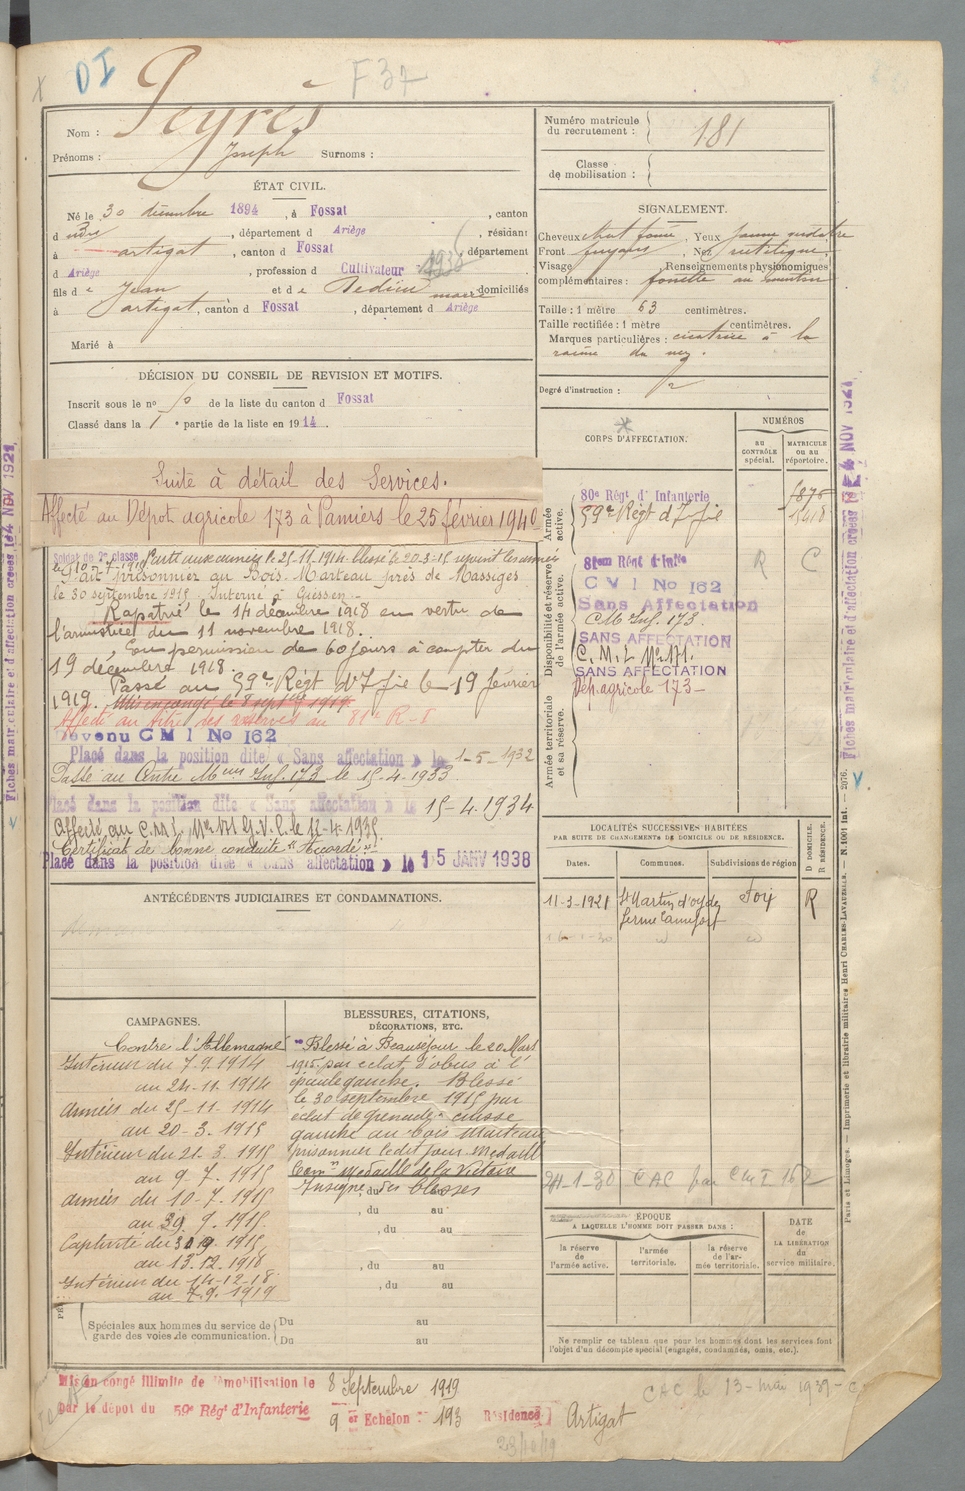 DI
F 37
Nom : Peyrès
Prénoms : Joseph Surnoms :
ÉTAT CIVIL.
Né le 30 décembre 1894, à Fossat, canton
d udz, département d Ariège, résidant
à artigat, canton d Fossat, département
d Ariège, profession d Cultivateur
fils d e Jean et d e Dedieu domiciliés
à artigat, canton d Fossat, département d Ariège
Marié à
DÉCISION DU CONSEIL DE REVISION ET MOTIFS.
Inscrit sous le no de la liste du canton d Fossat
Classé dans la 1e partie de la liste en 1914.
Suite à détail des Services.
Affecté au Dépot agricole 173 à Pamiers le 25 février 1940
Soldat de 2e classe Parti aux armées le 25.11.1914. blessé le 20.3.15 rejoint les armées
le 10-7-1915
Fait prisonnier au Bois Marteau près de Massiges
le 30 septembre 1915. Interné à Giessen.-
Rapatrié le 14 décembre 1918 en vertu de
l'armistice du 11 novembre 1918.
En permission de 60 jours à compter du
19 décembre 1918.
Passé au 59e Régt d'Ifie le 19 février
1919. Mis en congé le 8 septbre 1919
Affecté au titre des réserves au 81e R-I
Devenu CM I No 162
Placé dans la position dite « Sans affectation » le 1-5-1932
Passé au Centre Mque Inf. 173 le 15.4.1933
Placé dans la position dite « Sans affectation » le 15-4.1934
Affecté au C.M.I. No 171 G.V.C. le 11-4.1935.
Certificat de bonne conduite "Accordé"
Placé dans la position dite « Sans affectation » le 15 JANV 1938
ANTÉCÉDENTS JUDICIAIRES ET CONDAMNATIONS.
CAMPAGNES.
Contre l'Allemagne
Intérieur du 7.9.1914
au 24.11.1914
Armées du 25-11.1914
au 20-3.1915
Intérieur du 21-3.1915
au 9.7.1915
armées du 10-7.1915
au 30.9.1915.
Captivité du 31.9.1915
au 13.12.1918
Intérieur du 14-12-18
au 7.9.1919
Spéciales aux hommes du service de garde des voies de communication.
Du au
Du au
BLESSURES, CITATIONS,
DÉCORATIONS, ETC.
Blessé à Beauséjour le 20 Mars
1915 par éclat d'obus à l'
épaule gauche. Blessé
le 30 septembre 1915 par
éclat de grenade cuisse
gauche au bois Marteau
prisonnier le dit jour. Médaille
Comve Médaille de la Victoire
Insigne des blessés
, du au
, du au
, du au
, du au
Numéro matricule
du recrutement : 181
Classe
de mobilisation :
SIGNALEMENT.
Cheveux chat foncé, Yeux jaune verdatre
Front fuyant, Nez rectiligne,
Visage , Renseignements physionomiques
complémentaires : fossette au menton
Taille : 1 mètre 63 centimètres.
Taille rectifiée : 1 mètre centimètres.
Marques particulières : cicatrice à la
racine du nez.
Degré d'instruction : 2
CORPS D'AFFECTATION.
NUMÉROS
AU CONTRÔLE spécial.
MATRICULE ou au répertoire.
Armée active.
80e Régt d'Infanterie
59e Régt d'Ifie
Disponibilité et réserve de l'armée active.
81em Régt d'Infie R C
CM I No 162
Sans Affectation
CM Inf. 173.
SANS AFFECTATION
C. M. I. No 171.
SANS AFFECTATION
Dép. agricole 173-
Armée territoriale et sa réserve.
LOCALITÉS SUCCESSIVES HABITÉES
PAR SUITE DE CHANGEMENTS DE DOMICILE OU DE RÉSIDENCE.
D DOMICILE.
R RÉSIDENCE.
Dates. Communes. Subdivisions de région
11-3-1921 St Martin d'oydes Foix R
ferme Camefort
24-1-30 CAC par CM I 162
ÉPOQUE
A LAQUELLE L'HOMME DOIT PASSER DANS :
la réserve de l'armée active.
l'armée territoriale.
la réserve de l'armée territoriale.
DATE de LA LIBÉRATION du service militaire.
Ne remplir ce tableau que pour les hommes dont les services font
l'objet d'un décompte spécial (engagés, condamnés, omis, etc.).
Mis en congé illimité de démobilisation le 8 Septembre 1919
par le dépôt du 59e Régt d'Infanterie
9 er Echelon : 193 Résidence Artigat
23/10/19
CAC le 13-mai 1931-
Fiches matriculaire et d'affectation créées le 24 NOV 1921
Fiches matriculaire et d'affectation créées le 24 NOV 1921
Paris et Limoges. — Imprimerie et librairie militaires Henri CHARLES-LAVAUZELLE. — N. 1001 int. — 2076.